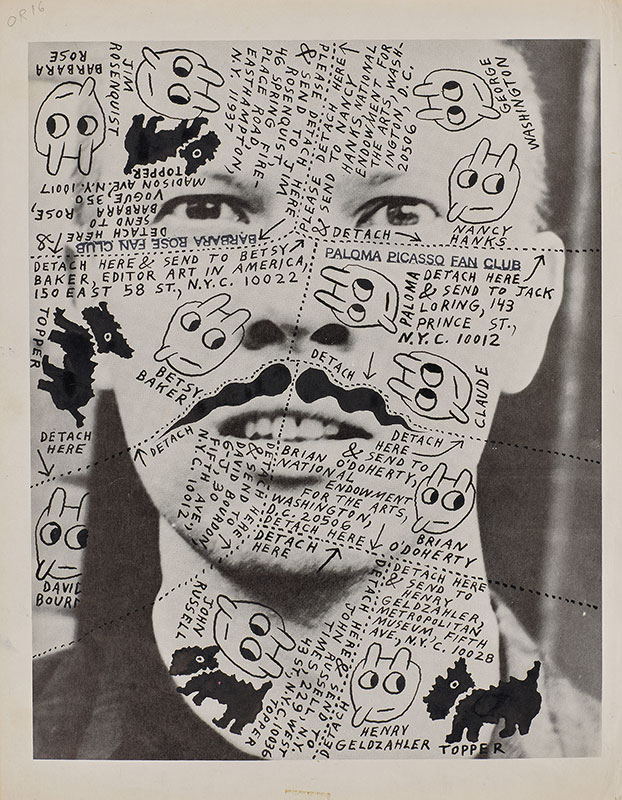 OR16
BARBARA
ROSE
JIM
ROSENQUIST
TOPPER
PLEASE DETACH HERE
& SEND TO JIM
ROSENQUIST
46 SPRING FIRE-
PLACE ROAD
EASTHAMPTON,
N.Y. 11937
PLEASE DETACH HERE
& SEND TO NANCY
HANKS, NATIONAL
ENDOWMENT FOR
THE ARTS, WASH-
INGTON, D.C.
20506
GEORGE
WASHINGTON
NANCY
HANKS
DETACH
DETACH HERE &
SEND TO
BARBARA ROSE,
VOGUE, 350
MADISON AVE, N.Y. 10017
BARBARA ROSE FAN CLUB
DETACH HERE & SEND TO BETSY
BAKER, EDITOR ART IN AMERICA,
150 EAST 58 ST., N.Y.C. 10022
PALOMA PICASSO FAN CLUB
DETACH HERE
& SEND TO JACK
LORING, 143
PRINCE ST.,
N.Y.C. 10012
PALOMA
CLAUDE
TOPPER
BETSY
BAKER
DETACH
DETACH
DETACH
HERE
DETACH
HERE
& SEND TO
BRIAN O'DOHERTY,
NATIONAL
ENDOWMENT
FOR THE ARTS,
WASHINGTON,
D.C. 20506
DETACH HERE
BRIAN
O'DOHERTY
DETACH HERE
& SEND TO
DAVID BOURDON
FIFTH AVE,
N.Y.C. 10012
DETACH
HERE
DAVID
BOUR
JOHN
RUSSELL
DETACH HERE &
SEND TO
JOHN RUSSELL
TIMES, 229 WEST
43 ST, N.Y.C. 10036
TOPPER
DETACH
DETACH HERE
& SEND TO
HENRY
GELDZAHLER,
METROPOLITAN
MUSEUM, FIFTH
AVE, N.Y.C. 10028
HENRY
GELDZAHLER
TOPPER